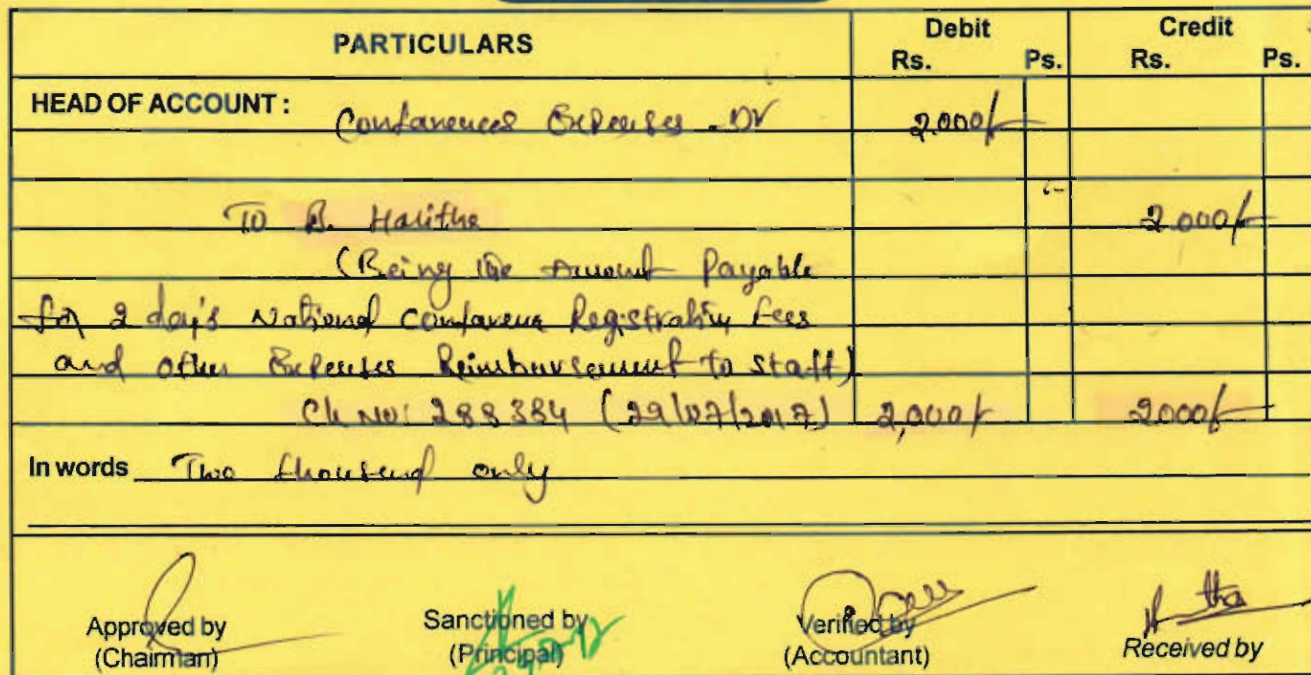 PARTICULARS Debit Credit
Rs. Ps. Rs. Ps.
HEAD OF ACCOUNT :
Conferences Expenses - Dr 2,000/-
To B. Halitha 2.000/-
(Being the Amount Payable
for 2 day's National Conference Registration Fees
and other Expenses Reimbursement to staff)
Ch No: 288384 (29/07/2017) 2,000/- 2000/-
In words Two thousand only
Approved by Sanctioned by Verified by Received by
(Chairman) (Principal) (Accountant)